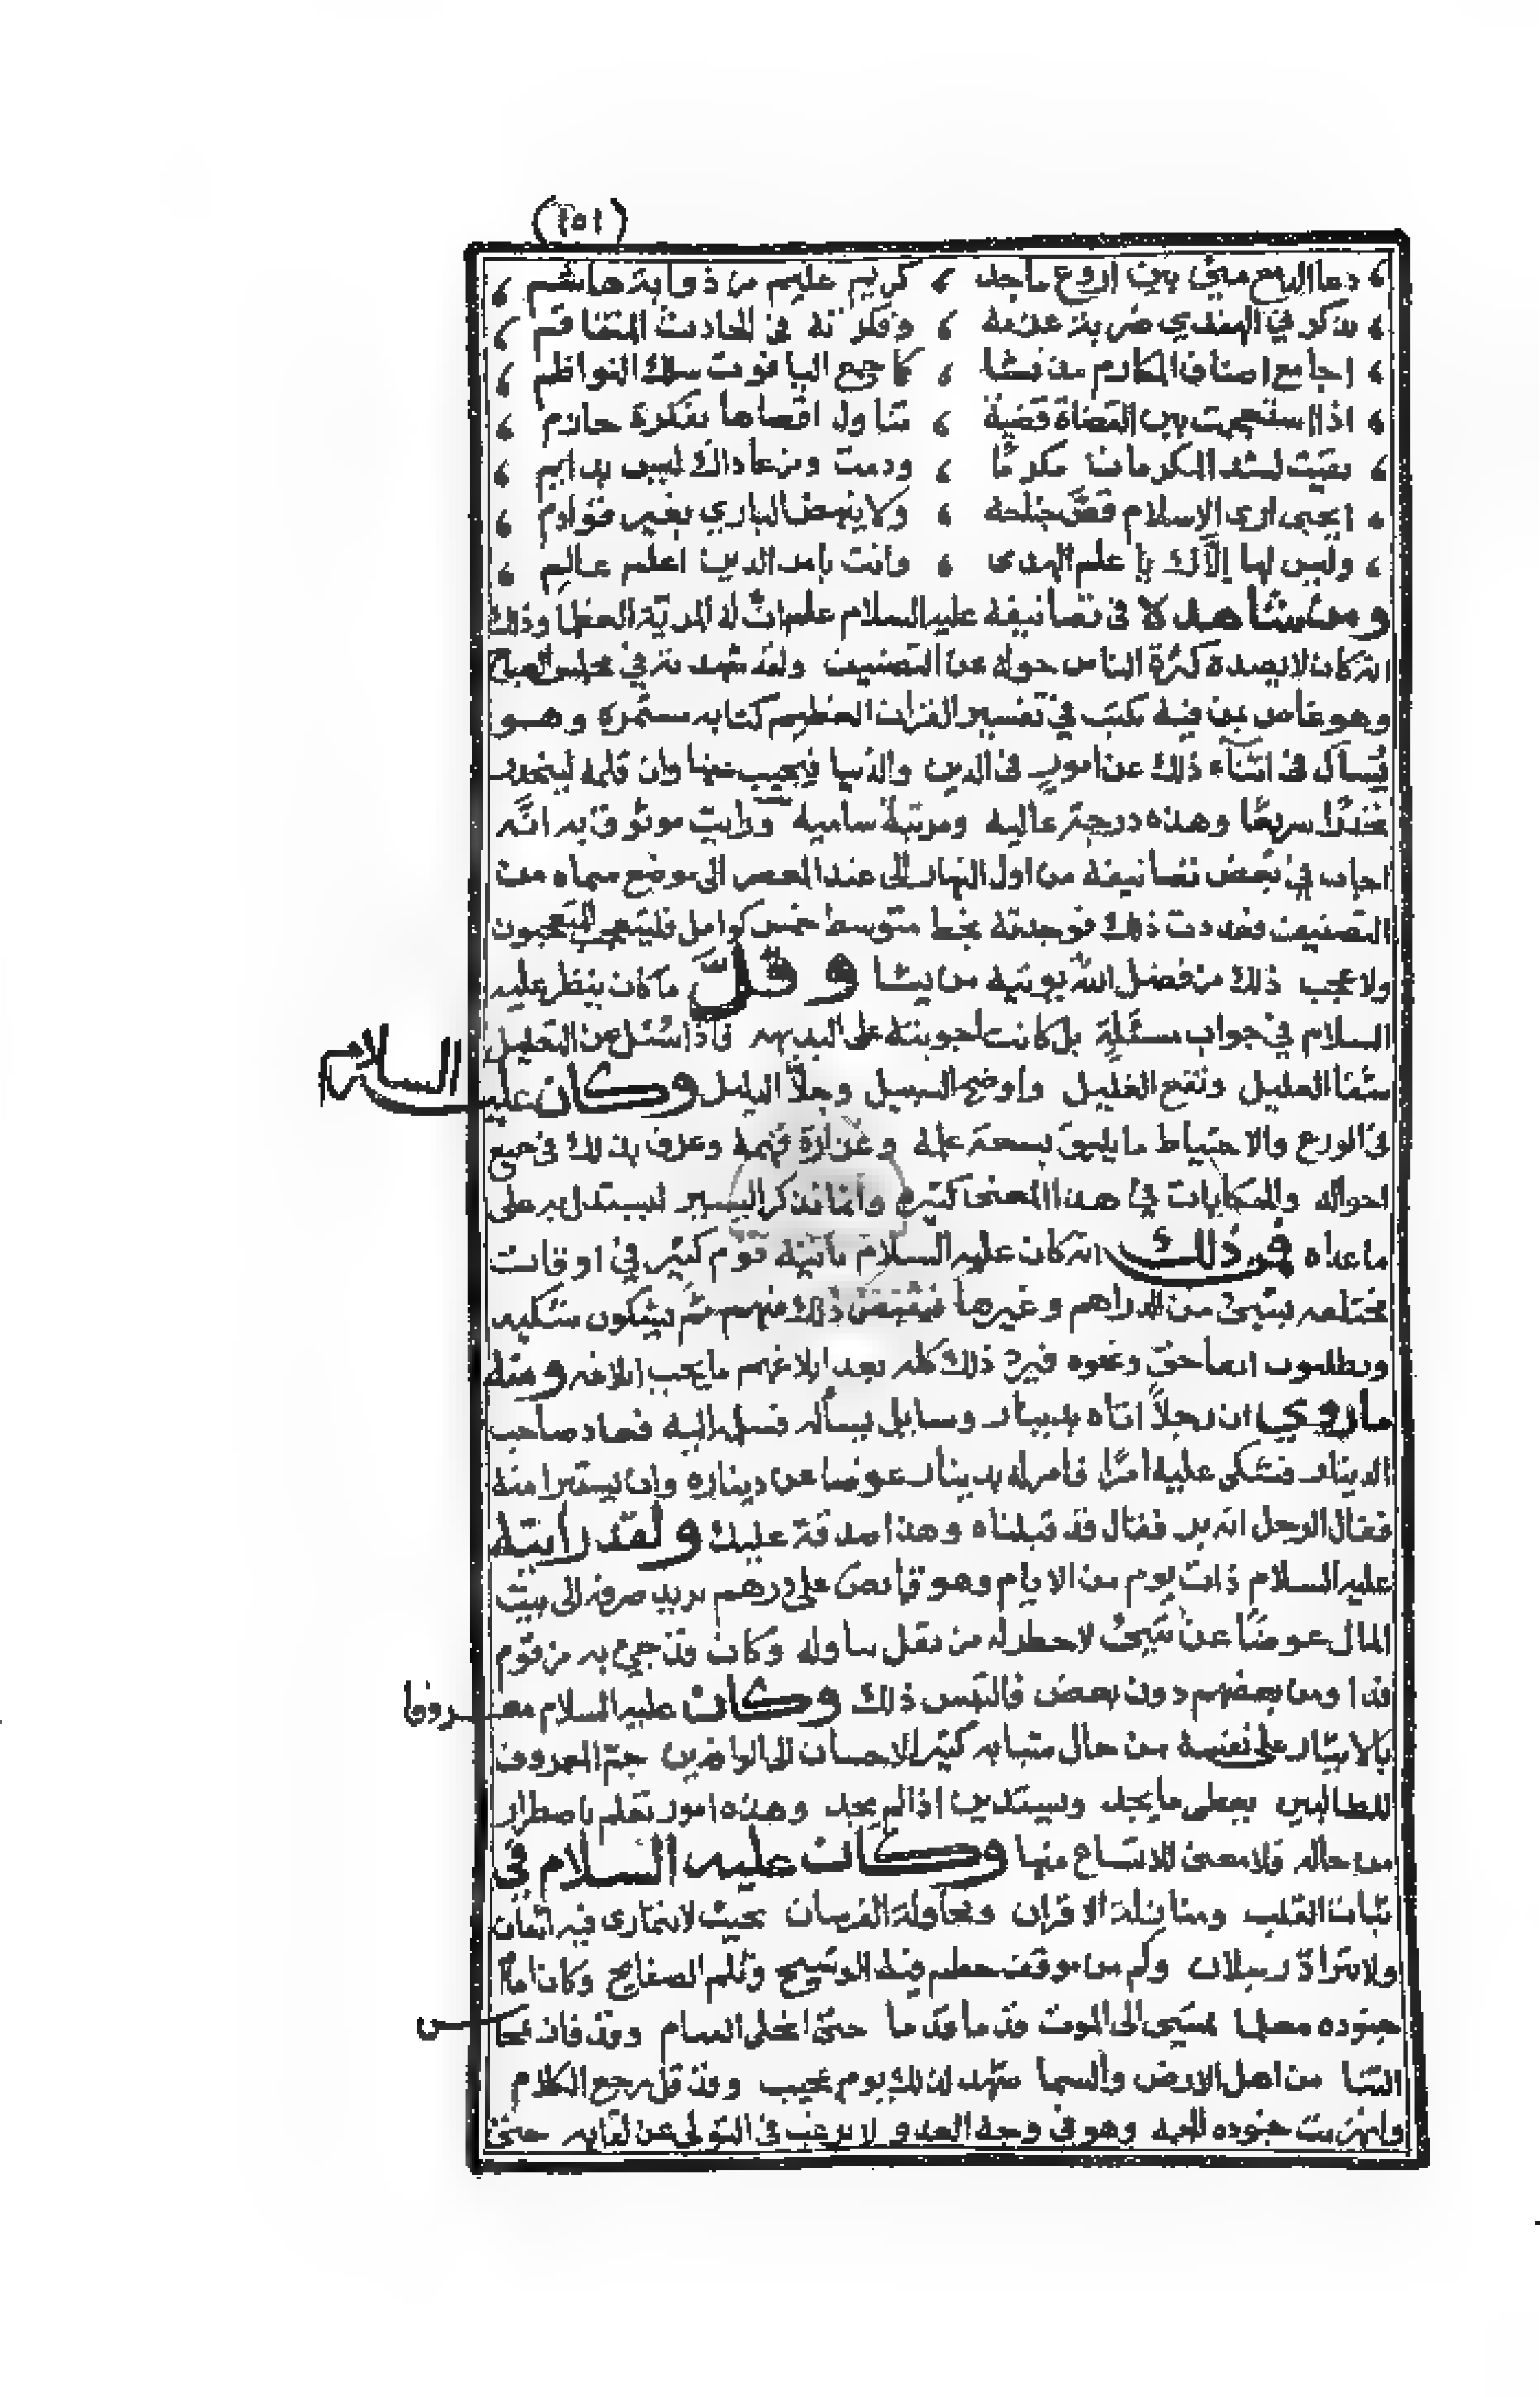 (٢٥١)
دعا الدمع مني بين اروع ماجد ، كريم عليم من ذوابة هاشم
في الهندي ضربة عزمه ، وفكرته في الحادث المتفاقم
اجامع اصناف المكارم مذ نشا ، كما جمع الياقوت سلك النواظم
اذا استعجمت بين القضاة قضية ، تناول اقصاها بفكرة حازم
بقيت لشد المكرمات مكرمًا ، ودمت ومن عاداك ليس بدايم
ايحيى ارى الاسلام قصّ جناحه ، ولا ينهض البازي بغير قوادم
وليس لها إلاّك يا علم الهدى ، وانت بامر الدين اعلم عالم
ومن شاهده في تصانيفه عليه السلام علم انّ له المزيّة العظما وذلك
انه كان لا يصده كثرة الناس حوله عن التصنيف ولقد شهدته في مجلس
وهو غاص بمن فيه يكتب في تفسير القران العظيم كتابه مستمرة وهو
يُسأل في اثناء ذلك عن امورٍ في الدين والدنيا فيجيب عنها وان قلمه لينحدر
سريعًا وهذه درجة عالية ومرتبة سامية موثوق به انّه
في بعض تصانيفه من اول النهار الى عند العصر الى موضع سماه من
التصنيف فعددت ذلك فوجدته بخط متوسط خمس كوامل فليتعجب المتعجبون
ولا عجب ذلك من فضل الله يوتيه من يشا وقلّ ما كان ينظر عليه
السلام في جواب مسئلة بل كانت اجوبته على البديهه فاذا سُئل عن التعليل
شفا العليل ونقع الغليل واوضح السبيل وكان عليه السلام
في الورع والاحتياط ما يليق بسعة علمه وغزارة فهمه وعرف بذلك في جميع
احواله والحكايات في هذا المعنى كثيرة وانما نذكر اليسير ليستدل به على
ما عداه فمن ذلك انه كان عليه السلام ياتيه قوم كثير في اوقات
مختلفه بشيئ من الدراهم وغيرها ذلك منهم ثم يشكون
ويطلبون حق ونحوه ذلك كله بعد ومنه
ما روي ان رجلاً اتاه بدينار وسايل يسأله فسلمه اليه فعاد صاحب
الدينار فشكى عليه امرًا فامر له بدينار عوضا عن ديناره وان يستبرا منه
فقال الرجل انه بر فقال قد قبلناه وهذا صدقة عليك ولقد رايته
عليه السلام ذات يوم من الايام وهو قابض على درهم يريد صرفه الى بيت
المال عوضًا عن شيئ لا خطر له من وكان قد جيئ به من قوم
ومن بعضهم دون بعض فالتبس ذلك وكان عليه السلام معروفا
بالايثار على نفسه من حال شبابه كثير الاحسان الى جمّ المعروف
للطالبين يعطى ما يجد ويستدين اذا لم يجد وهذه امور تعلم باضطرار
من حاله ولا معنى للاتساع منها وكان عليه السلام في
ثبات القلب ومنازلة الاقران ومحاولة الفرسان بحيث لا يتمارى فيه اثنان
وكم من موقف الصفايح وكان اماً
جنوده الى الموت قدما قدما حتى
من اهل الارض والسما شهد له بذلك يوم عجيب وقد قل مرجع الكلام
وانهزمت جنوده وهو في وجه العدو لا يرغب في التولي عن لقايه حتى